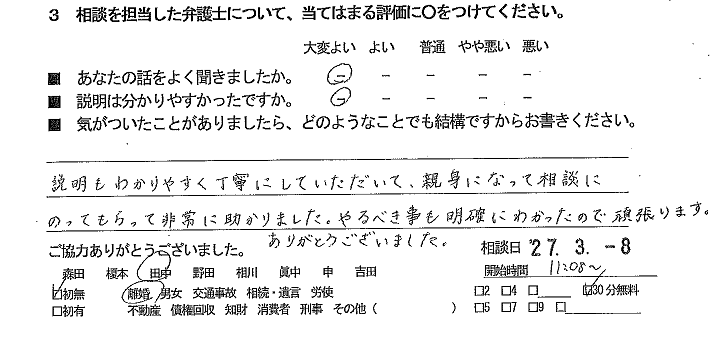 3 相談を担当した弁護士について、当てはまる評価に〇をつけてください。
大変よい よい 普通 やや悪い 悪い
■ あなたの話をよく聞きましたか。 － － － － －
■ 説明は分かりやすかったですか。 － － － － －
■ 気がついたことがありましたら、どのようなことでも結構ですからお書きください。
説明もわかりやすく丁寧にしていただいて、親身になって相談に
のってもらって非常に助かりました。やるべき事も明確にわかったので頑張ります。
ありがとうございました。
ご協力ありがとうございました。 相談日 '27. 3. -8
森田 榎本 田中 野田 相川 眞中 申 吉田 開始時間 11:08〜
☑初無 離婚 男女 交通事故 相続・遺言 労使 □2 □4 □____ ☑30分無料
□初有 不動産 債権回収 知財 消費者 刑事 その他 ( ) □5 □7 □9 □____